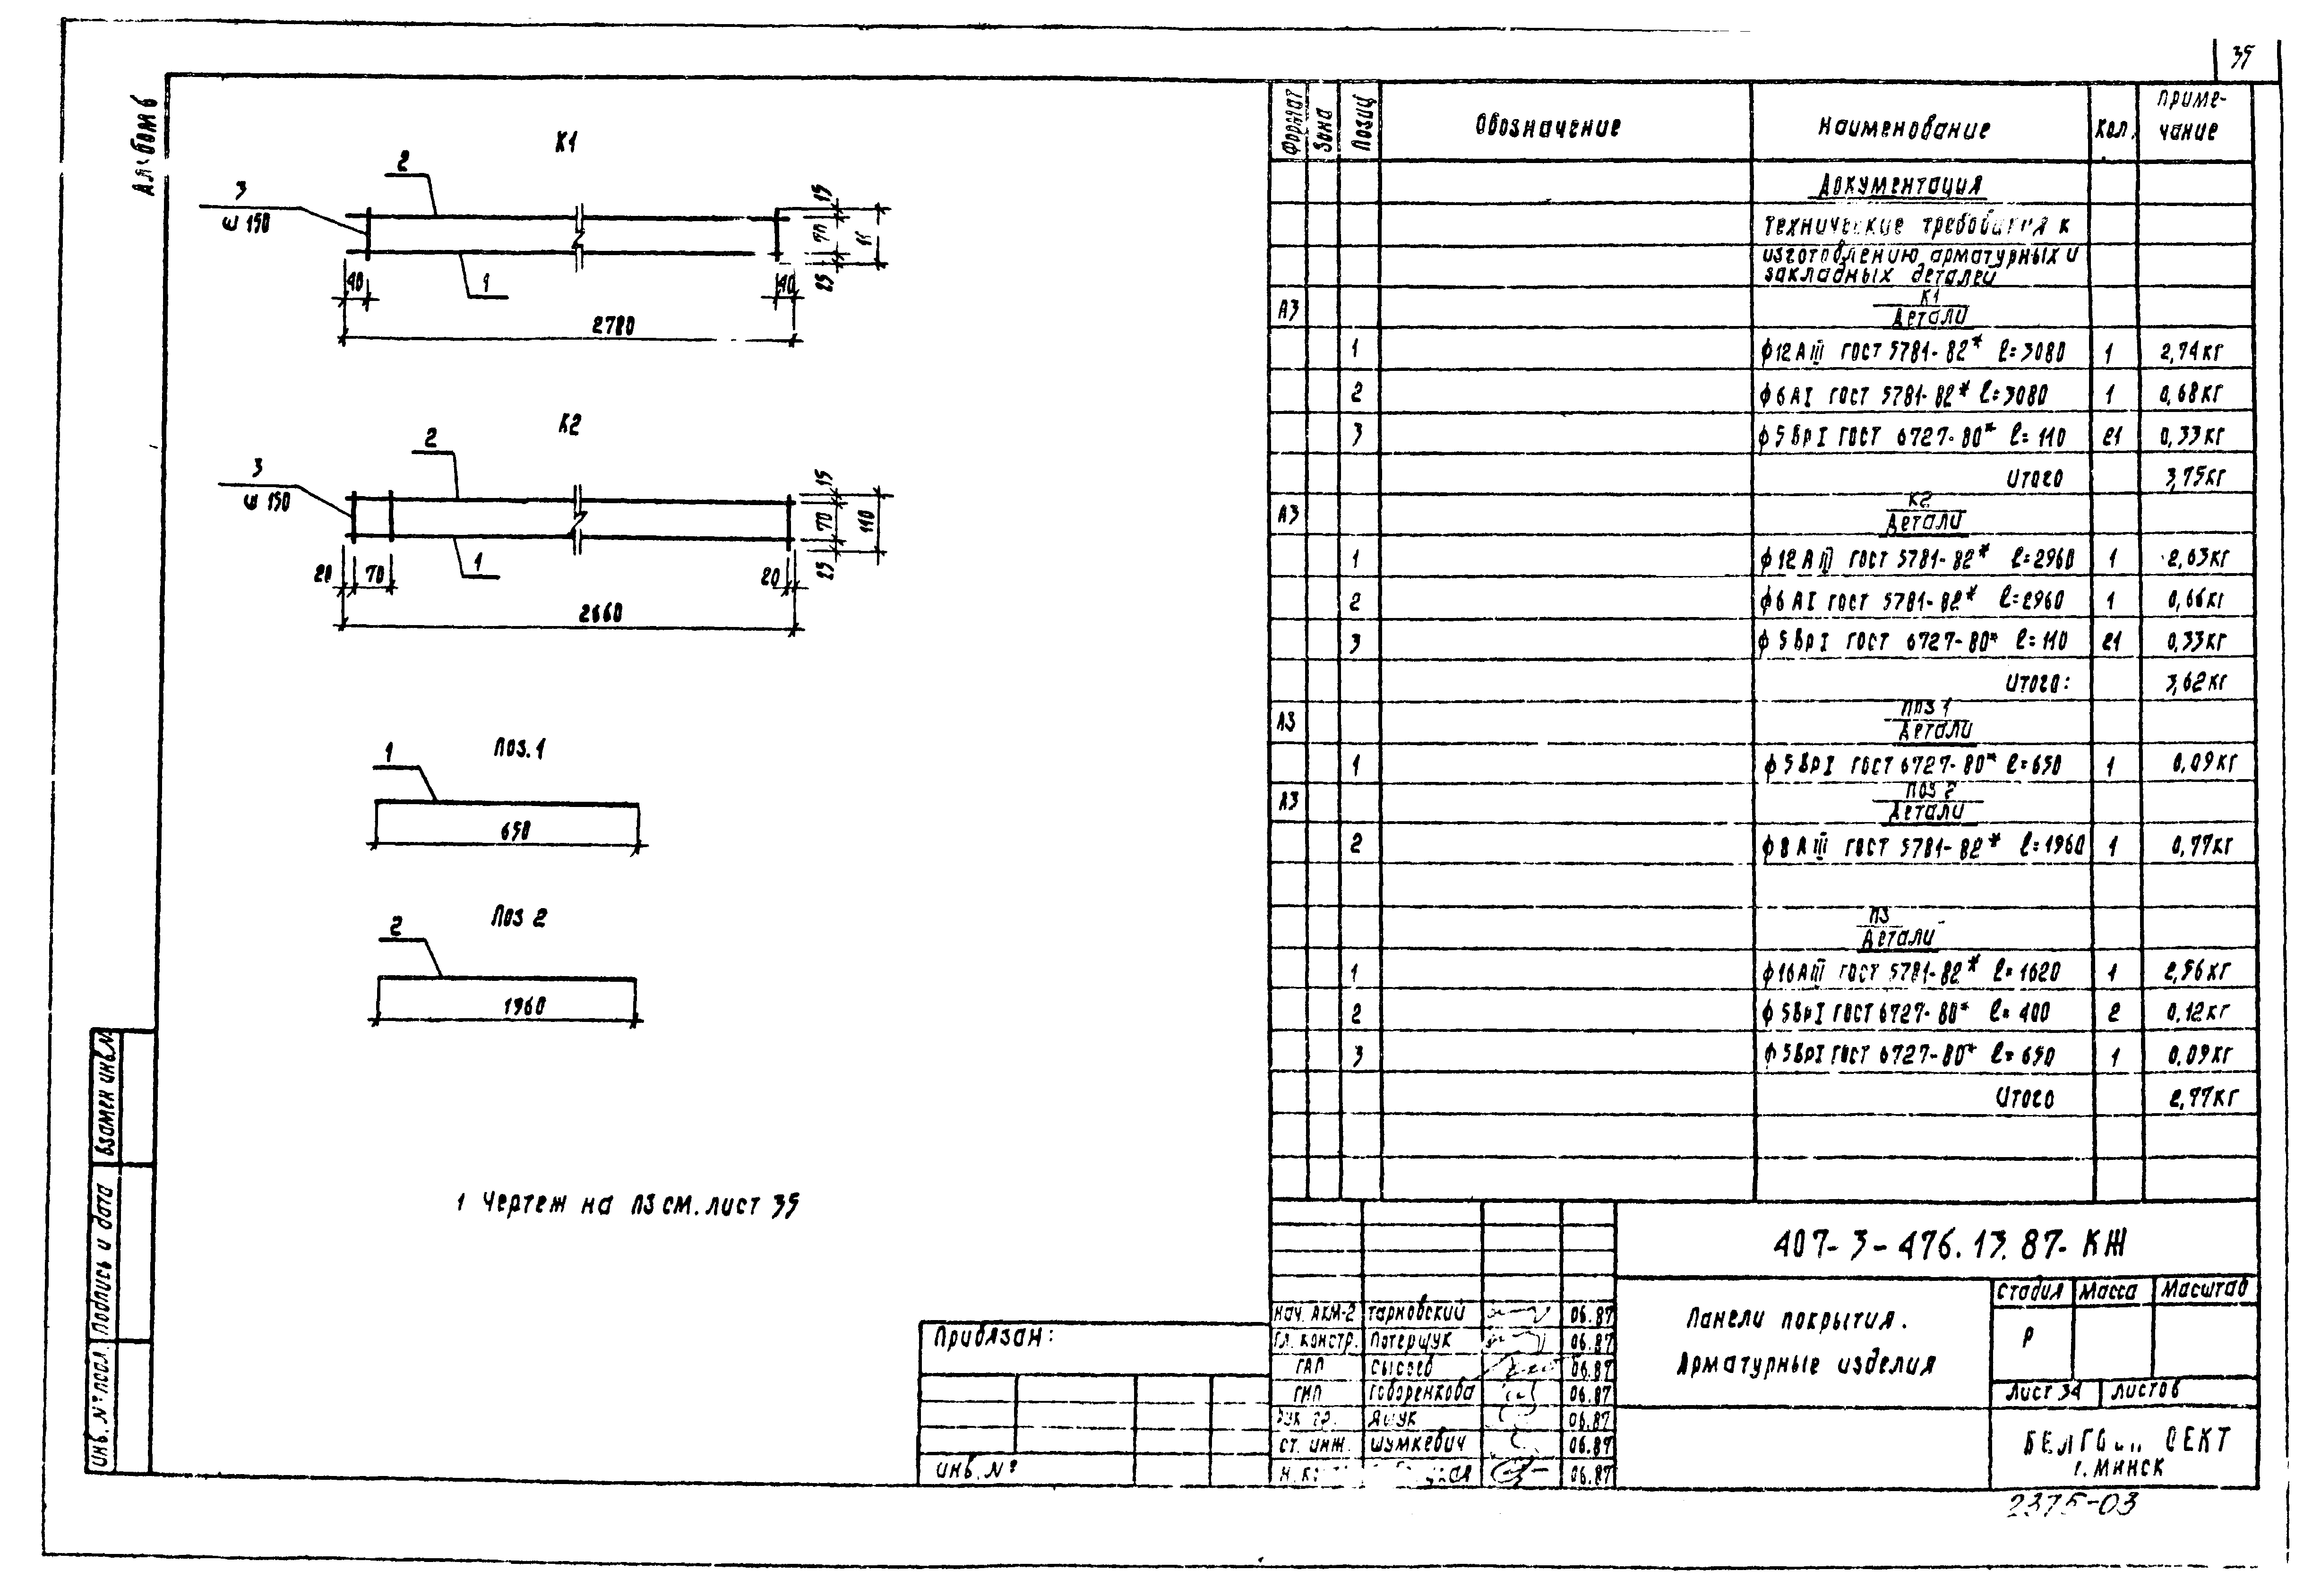 35
Альбом 6
К1
2
3
ш 150
15
70
25
1
40
40
2780
К2
2
3
ш 150
15
70
110
25
1
20
70
20
2660
Поз. 1
1
650
Поз 2
2
1960
1 Чертеж на П3 см. лист 35
Формат Зона Позиц Обозначение Наименование Кол. Примечание
Документация
Технические требования к
изготовлению арматурных и
закладных деталей
А3 К1
Детали
1 ф12АIII ГОСТ 5781-82* ℓ=3080 1 2,74кг
2 ф6АI ГОСТ 5781-82* ℓ=3080 1 0,68кг
3 ф5ВрI ГОСТ 6727-80* ℓ=110 21 0,33кг
Итого 3,75кг
А3 К2
Детали
1 ф12АIII ГОСТ 5781-82* ℓ=2960 1 2,63кг
2 ф6АI ГОСТ 5781-82* ℓ=2960 1 0,66кг
3 ф5ВрI ГОСТ 6727-80* ℓ=110 21 0,33кг
Итого: 3,62кг
А3 Поз 1
Детали
1 ф5ВрI ГОСТ 6727-80* ℓ=650 1 0,09кг
А3 Поз 2
Детали
2 ф8АIII ГОСТ 5781-82* ℓ=1960 1 0,77кг
П3
Детали
1 ф16АIII ГОСТ 5781-82* ℓ=1620 1 2,56кг
2 ф5ВрI ГОСТ 6727-80* ℓ=400 2 0,12кг
3 ф5ВрI ГОСТ 6727-80* ℓ=650 1 0,09кг
Итого 2,77кг
407-3-476.13.87-КЖ
Панели покрытия.
Арматурные изделия
Стадия Масса Масштаб
Р
Лист 34 Листов
г. Минск
Нач. АКМ-2 Тарновский 06.87
Гл. констр. Потерщук 06.87
ГАП Сысоев 06.87
ГИП Говоренкова 06.87
Рук. гр. Ящук 06.87
Ст. инж. Шумкевич 06.87
06.87
Привязан:
Инв. №
Взамен инв. №
Подпись и дата
Инв. № подл.
2375-03